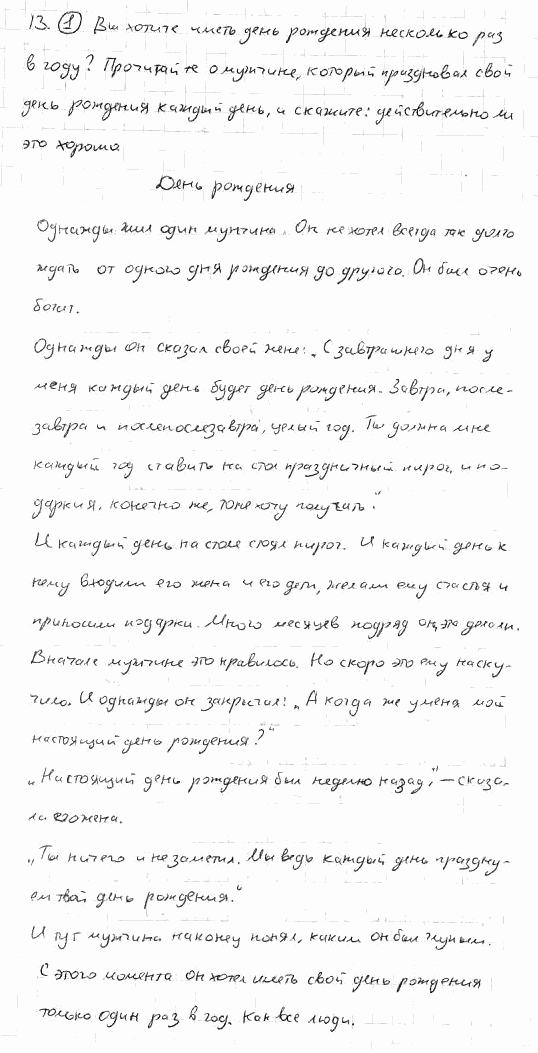 13. ① Вы хотите иметь день рождения несколько раз
в году? Прочитайте о мужчине, который праздновал свой
день рождения каждый день, и скажите: действительно ли
это хорошо
День рождения
Однажды жил один мужчина. Он не хотел всегда так долго
ждать от одного дня рождения до другого. Он был очень
богат.
Однажды он сказал своей жене: „С завтрашнего дня у
меня каждый день будет день рождения. Завтра, после-
завтра и послепослезавтра, целый год. Ты должна мне
каждый год ставить на стол праздничный пирог, и по-
дарки я, конечно же, тоже хочу получать."
И каждый день на столе стоял пирог. И каждый день к
нему входили его жена и его дети, желали ему счастья и
приносили подарки. Много месяцев подряд они это делали.
Вначале мужчине это нравилось. Но скоро это ему наску-
чило. И однажды он закричал: „А когда же у меня мой
настоящий день рождения?"
„Настоящий день рождения был неделю назад", – сказа-
ла его жена.
„Ты ничего и не заметил. Мы ведь каждый день праздну-
ем твой день рождения."
И тут мужчина наконец понял, каким он был глупым.
С этого момента он хотел иметь свой день рождения
только один раз в год. Как все люди.